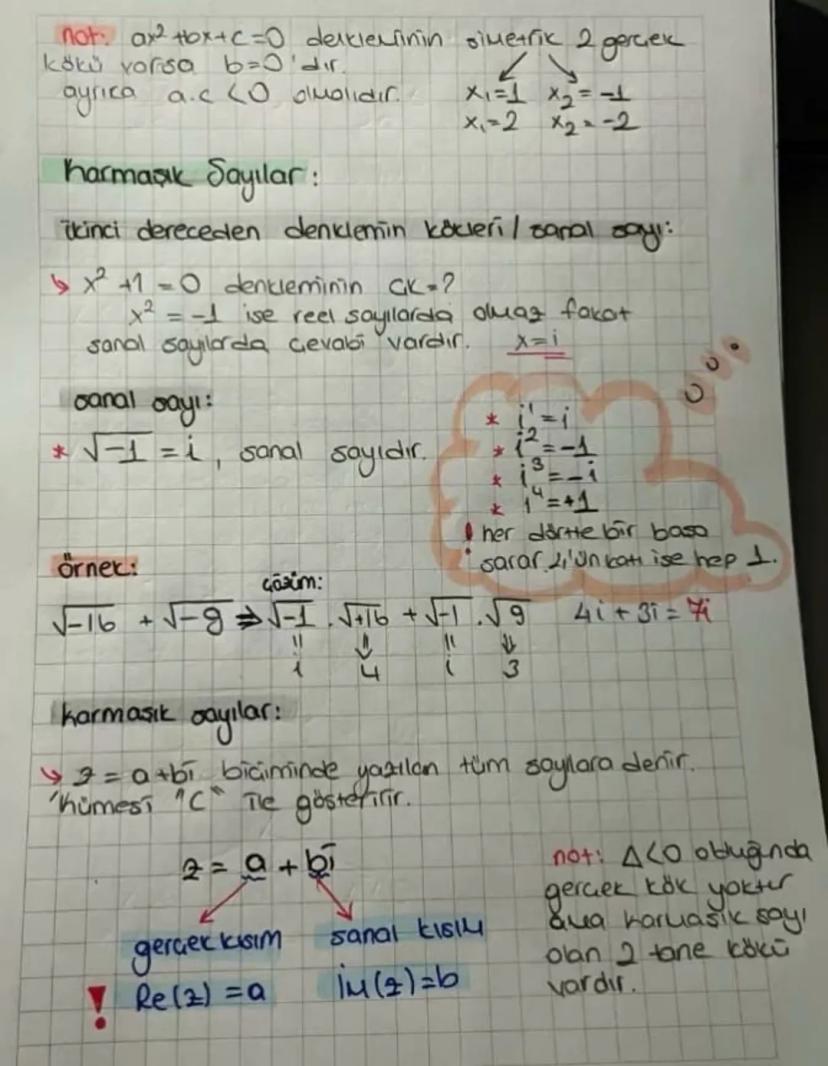 not: ax² + bx + c = 0 denkleminin simetrik 2 gerçek
kökü varsa b=0'dır.
ayrıca a.c < 0 olmalıdır.
x₁=1 x₂=-1
x₁=2 x₂=-2
Karmaşık Sayılar:
ikinci dereceden denklemin kökleri / sanal sayı:
↳ x² +1 = 0 denkleminin ÇK=?
x² = -1 ise reel sayılarda olmaz fakat
sanal sayılarda cevabı vardır. x=i
sanal sayı:
* √-1 = i, sanal sayıdır.
* i¹=i
* i²=-1
* i³=-i
* i⁴=+1
! her dörtte bir başa
sarar 4'ün katı ise hep 1.
örnek:
çözüm:
√-16 + √-9 ⇒ √-1 . √+16 + √-1 . √9 4i + 3i = 7i
i 4 i 3
karmaşık sayılar:
↳ z = a+bi biçiminde yazılan tüm sayılara denir.
kümesi "C" ile gösterilir.
z = a + bi
gerçek kısım sanal kısım
! Re(z) = a İm(z)=b
not: Δ<0 olduğunda
gerçek kök yoktur
ama karmaşık sayı
olan 2 tane kökü
vardır.